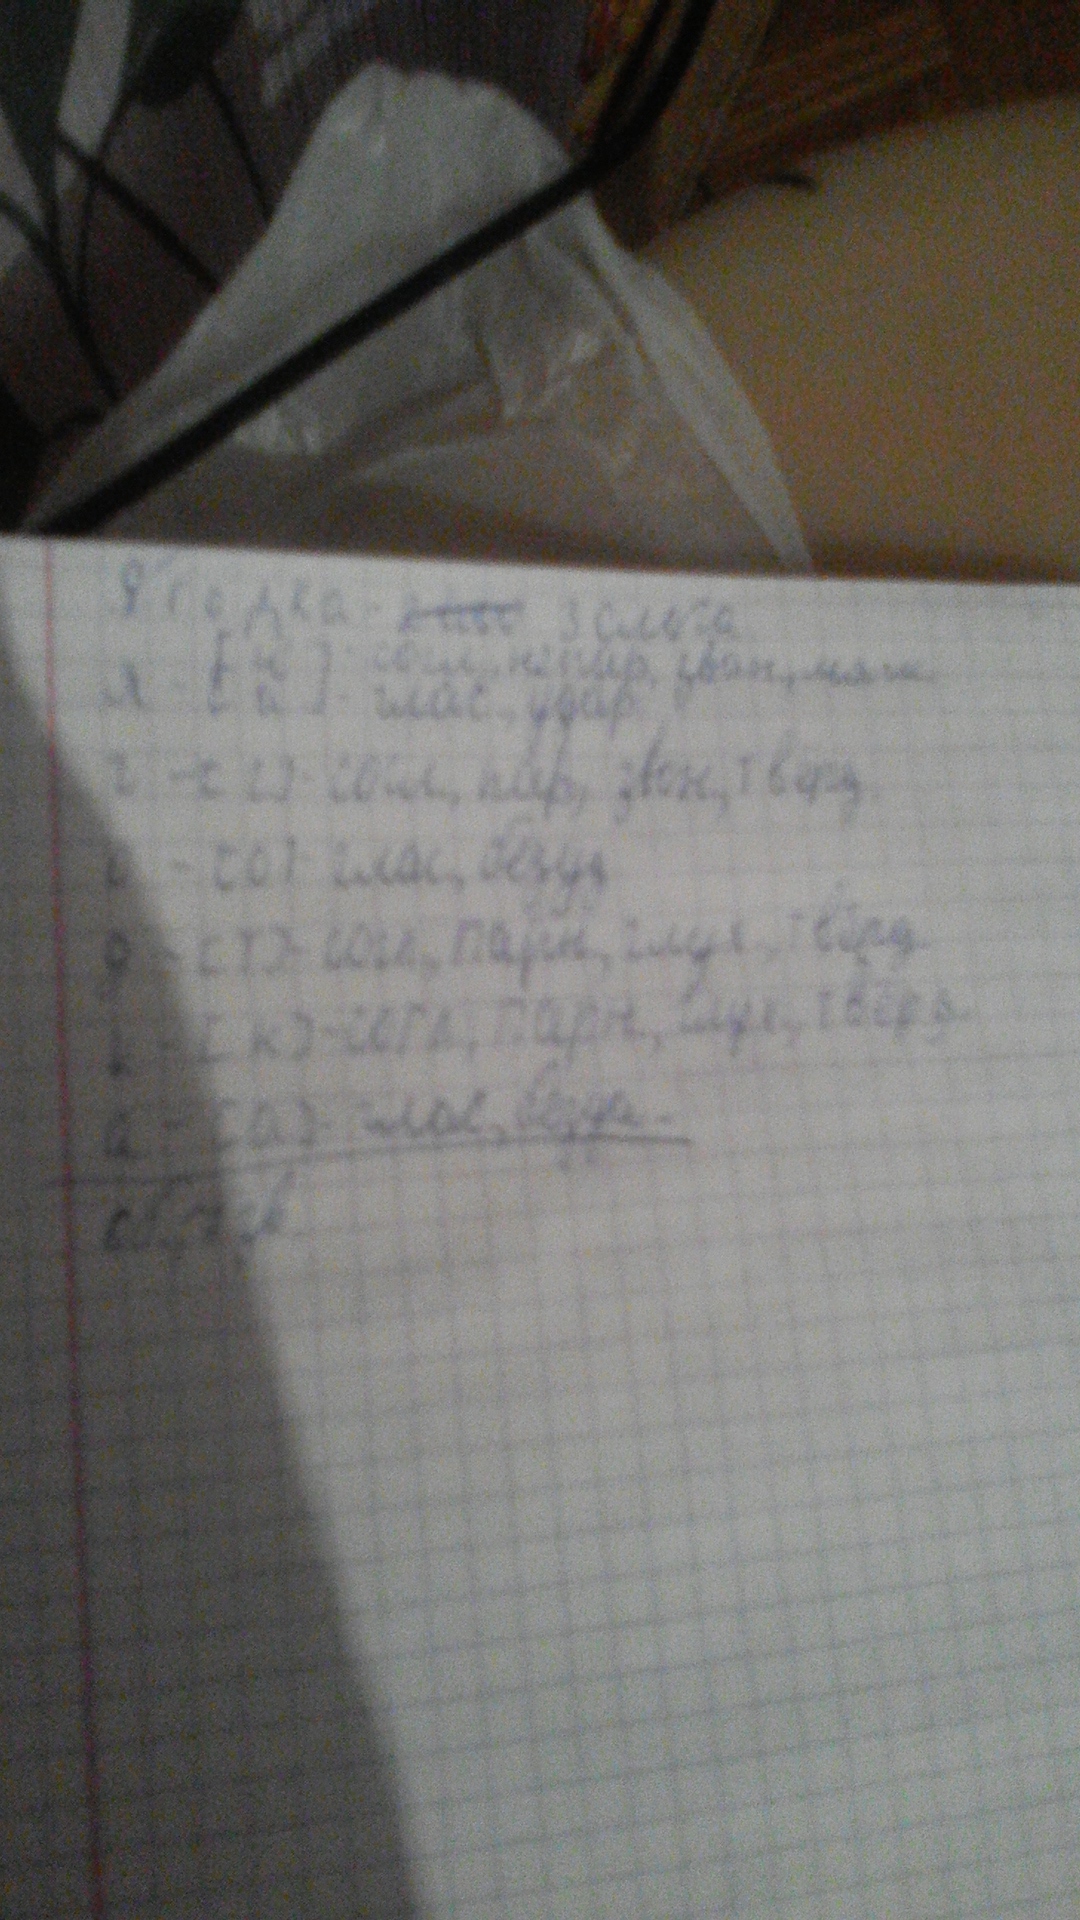 Ягодка - 3 слога
я - [й] - согл, непар, звон, мягк
[а] - глас, удар
г - [г] - согл, пар, звон, тверд
о - [о] - глас, безуд
д - [т] - согл, парн, глух, твёрд
к - [к] - согл, парн, глух, твёрд
а - [а] - глас, безуд.